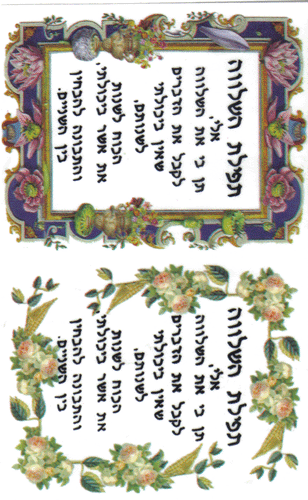 תפלת השלווה
אלי,
תן בי את השלווה
לקבל את הדברים
שאין ביכולתי
לשנותם,
הכח לשנות
את אשר ביכולתי,
והתבונה להבחין
בין השניים.
תפלת השלווה
אלי,
תן בי את השלווה
לקבל את הדברים
שאין ביכולתי
לשנותם,
הכח לשנות
את אשר ביכולתי,
והתבונה להבחין
בין השניים.